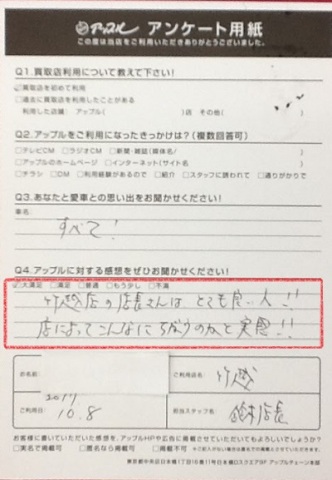 アップル アンケート用紙
この度は当店をご利用いただきありがとうございました。
Q1.買取店利用について教えて下さい!
☑買取店を初めて利用
□過去に買取店を利用したことがある
利用した店舗: アップル( )店 その他( )
Q2.アップルをご利用になったきっかけは?(複数回答可)
□テレビCM □ラジオCM □新聞・雑誌(媒体名/ )
□アップルのホームページ □インターネット(サイト名 )
□チラシ □DM □利用経験があるので □紹介 □スタッフに誘われて □通りがかりで
Q3.あなたと愛車との思い出をお聞かせください!
車名:
すべて!
Q4.アップルに対する感想をぜひお聞かせください!
☑大満足 □満足 □普通 □もう少し □不満
竹越店の店長さんは とても良い人!!
店によってこんなに ちがうのかと 実感!!
お名前: ご利用店名: 竹越
ご利用日: 2017 10.8 担当スタッフ名 鈴木店長
お客様に書いていただいた感想を、アップルHPや広告に掲載させていただいてもよろしいでしょうか?
□実名で掲載可 □匿名なら掲載可 □掲載不可
東京都中央区日本橋1丁目16番11号日本橋Dスクエア5F アップルチェーン本部